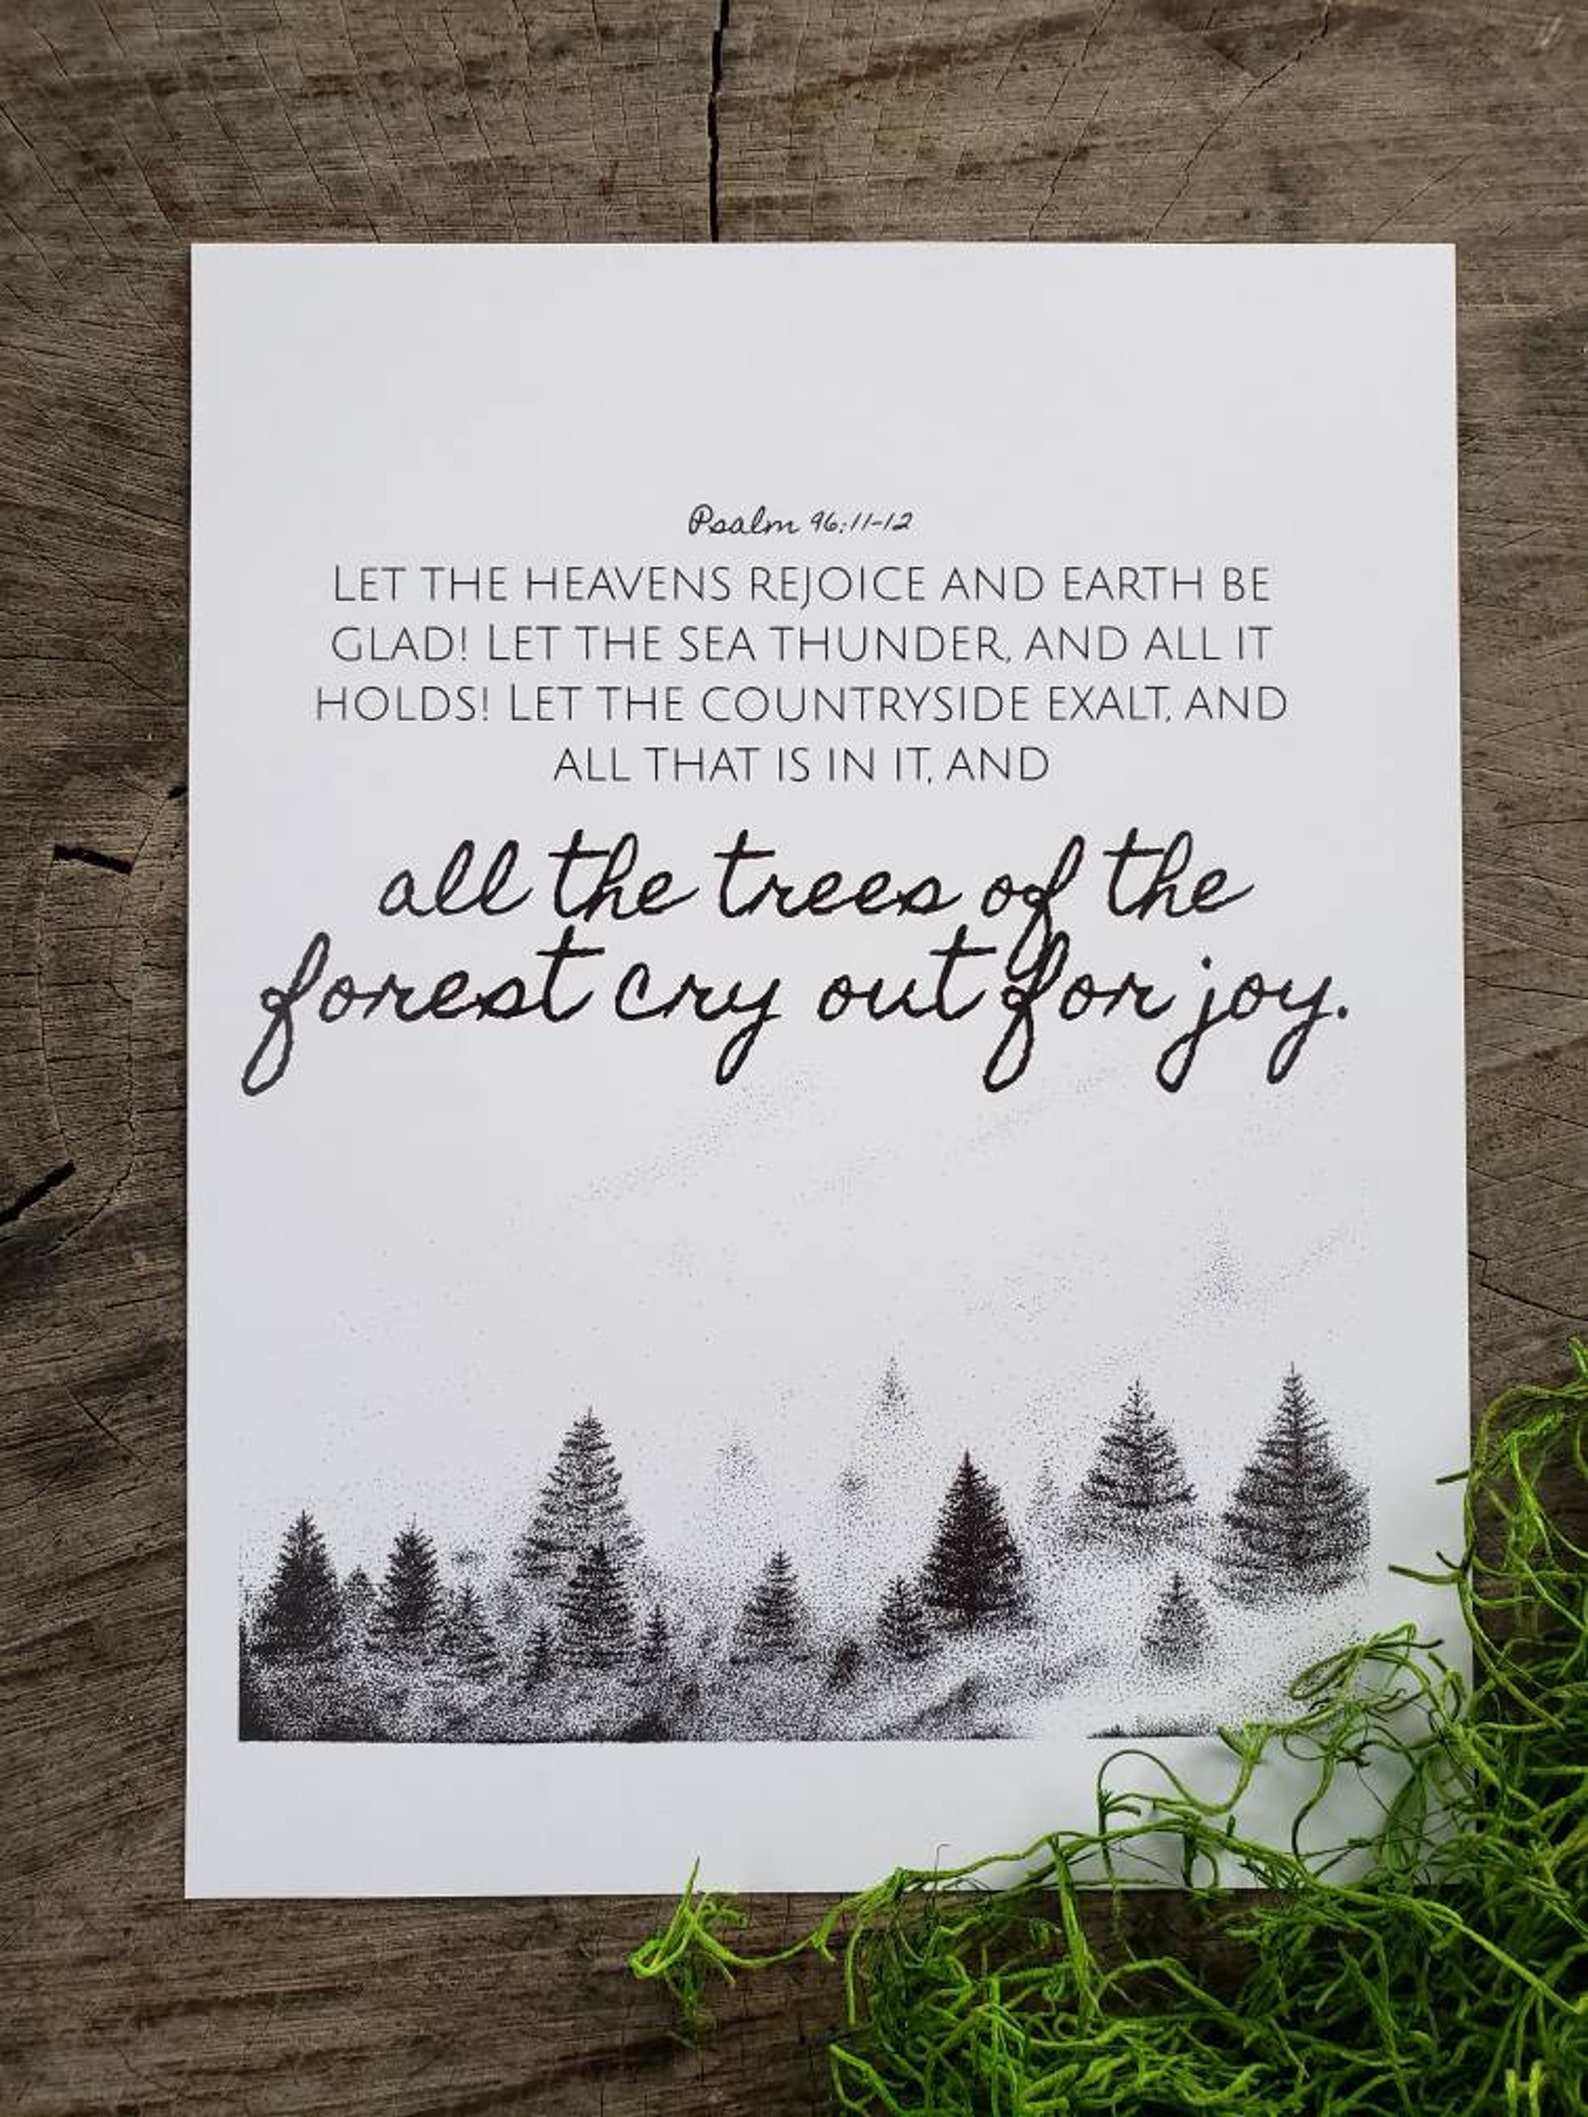 Psalm 96:11-12
LET THE HEAVENS REJOICE AND EARTH BE
GLAD! LET THE SEA THUNDER, AND ALL IT
HOLDS! LET THE COUNTRYSIDE EXALT, AND
ALL THAT IS IN IT, AND
all the trees of the
forest cry out for joy.